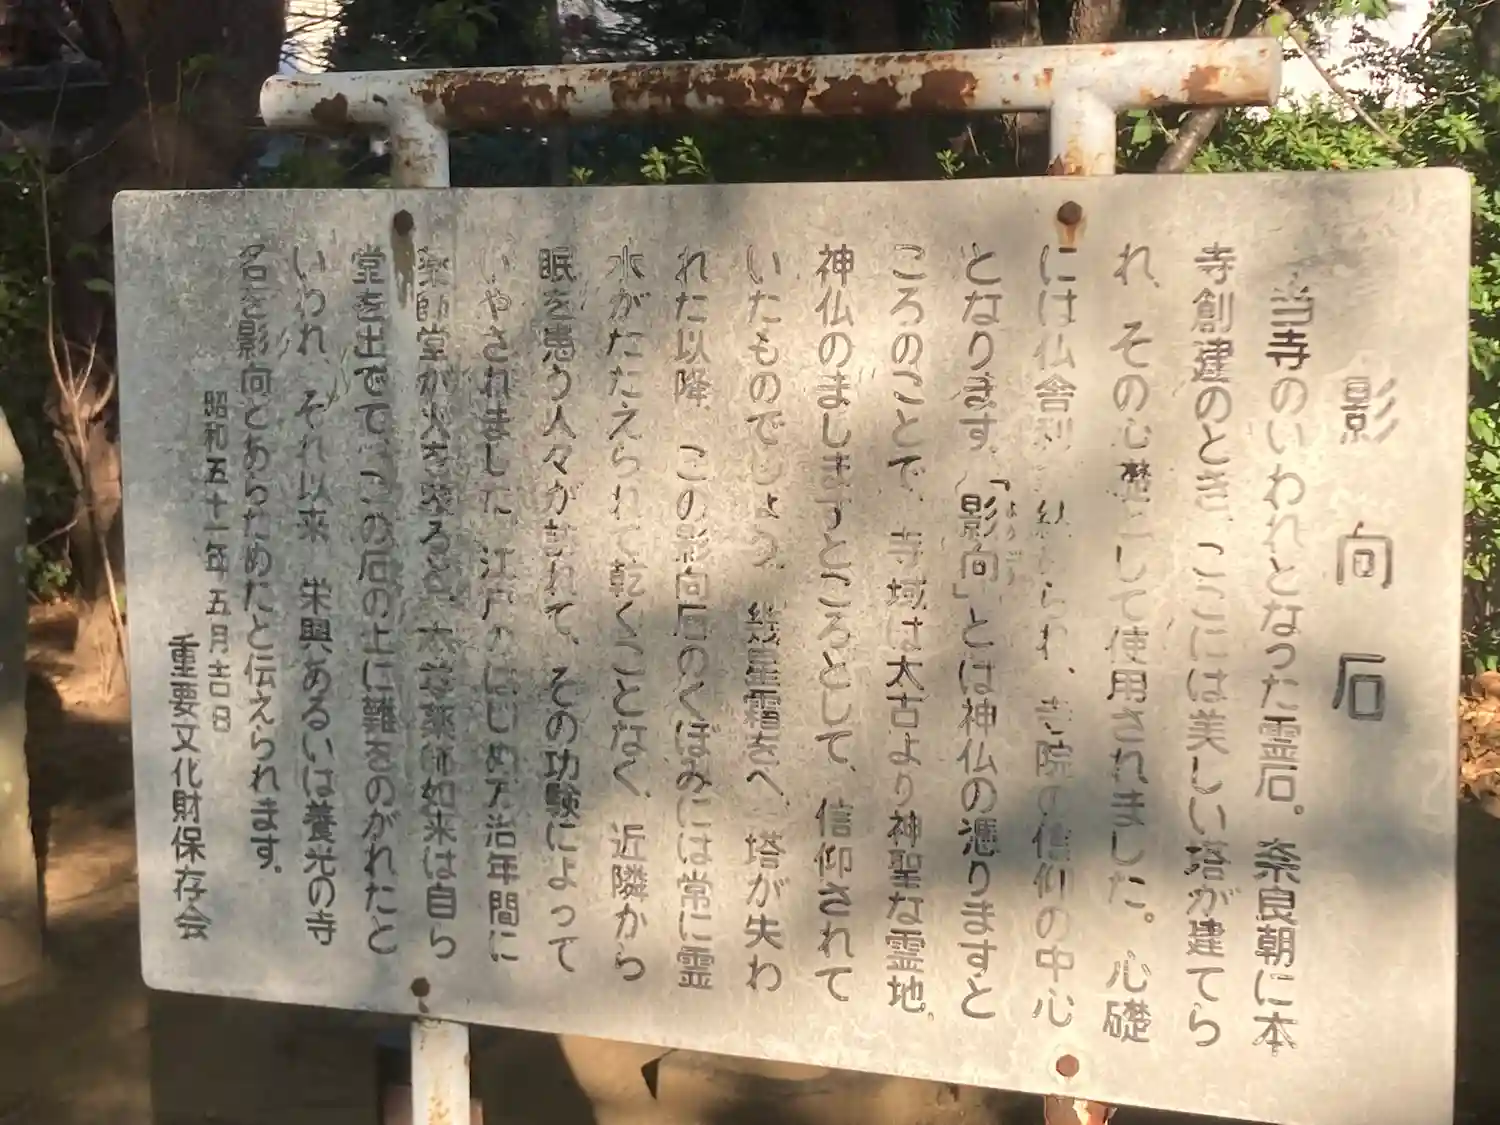 影向石
当寺のいわれとなった霊石。奈良朝に本
寺創建のとき、ここには美しい塔が建てら
れ、その心礎として使用されました。心礎
には仏舎利が られ、寺院の信仰の中心
となります。「影向」とは神仏の憑りますと
ころのことで、寺域は太古より神聖な霊地。
神仏のましますところとして、信仰されて
いたものでしょう。幾星霜をへ、塔が失わ
れた以降、この影向石のくぼみには常に霊
水がたたえられて乾くことなく、近隣から
眼を患う人々が訪れて、その功験によって
いやされました。江戸のはじめ万治年間に
薬師堂が火を蒙ると、本尊薬師如来は自ら
堂を出でて、この石の上に難をのがれたと
いわれ、それ以来、栄興あるいは養光の寺
名を影向とあらためたと伝えられます。
昭和五十一年五月吉日
重要文化財保存会